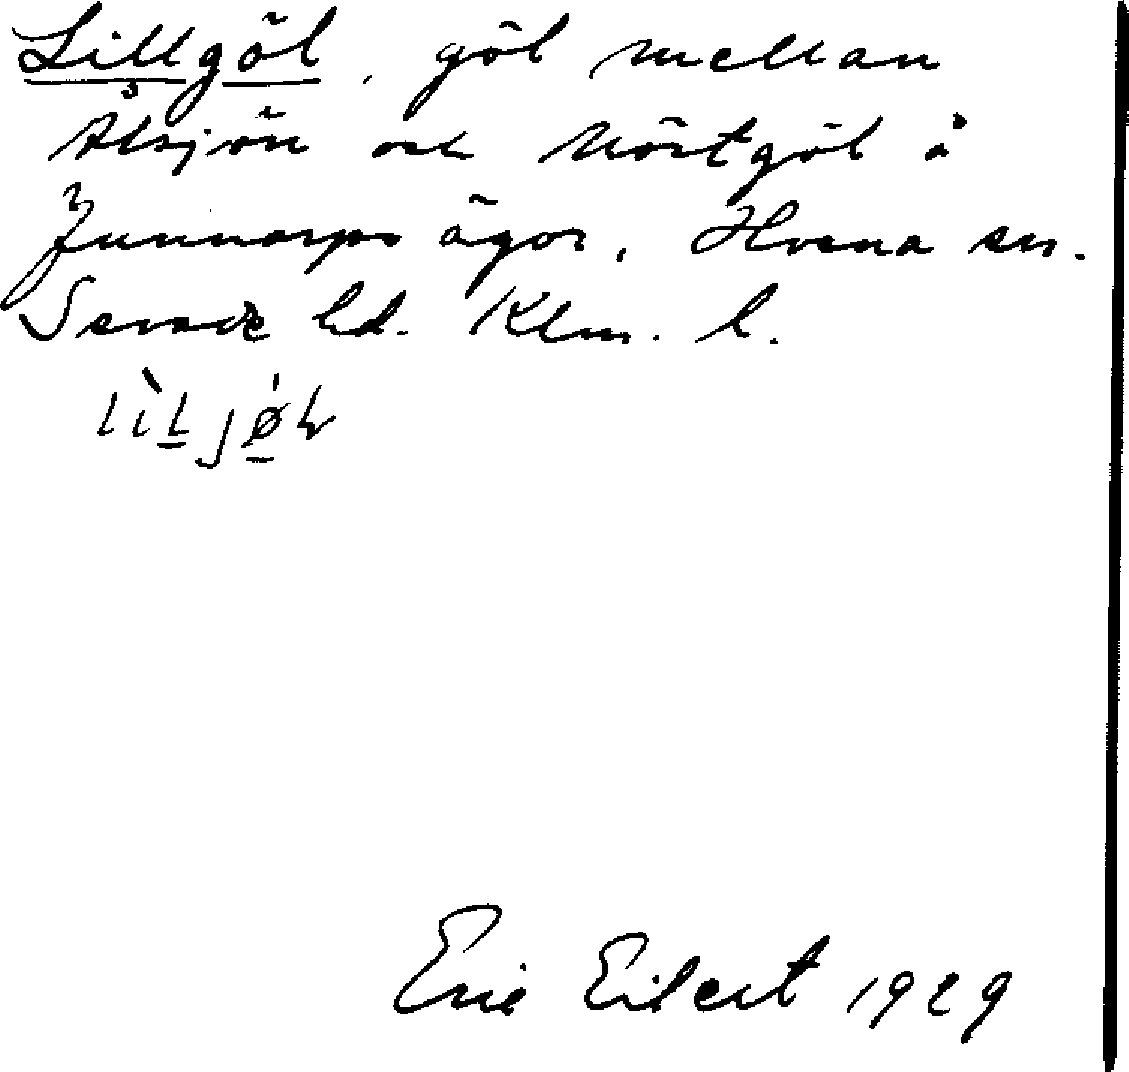 Lillgöl, göl mellan
Ålsjön och Mörtgöl å
Junnarps ägor, Hvena sn.
Sevede hd. Klm. l.
Eric Eilert 1929